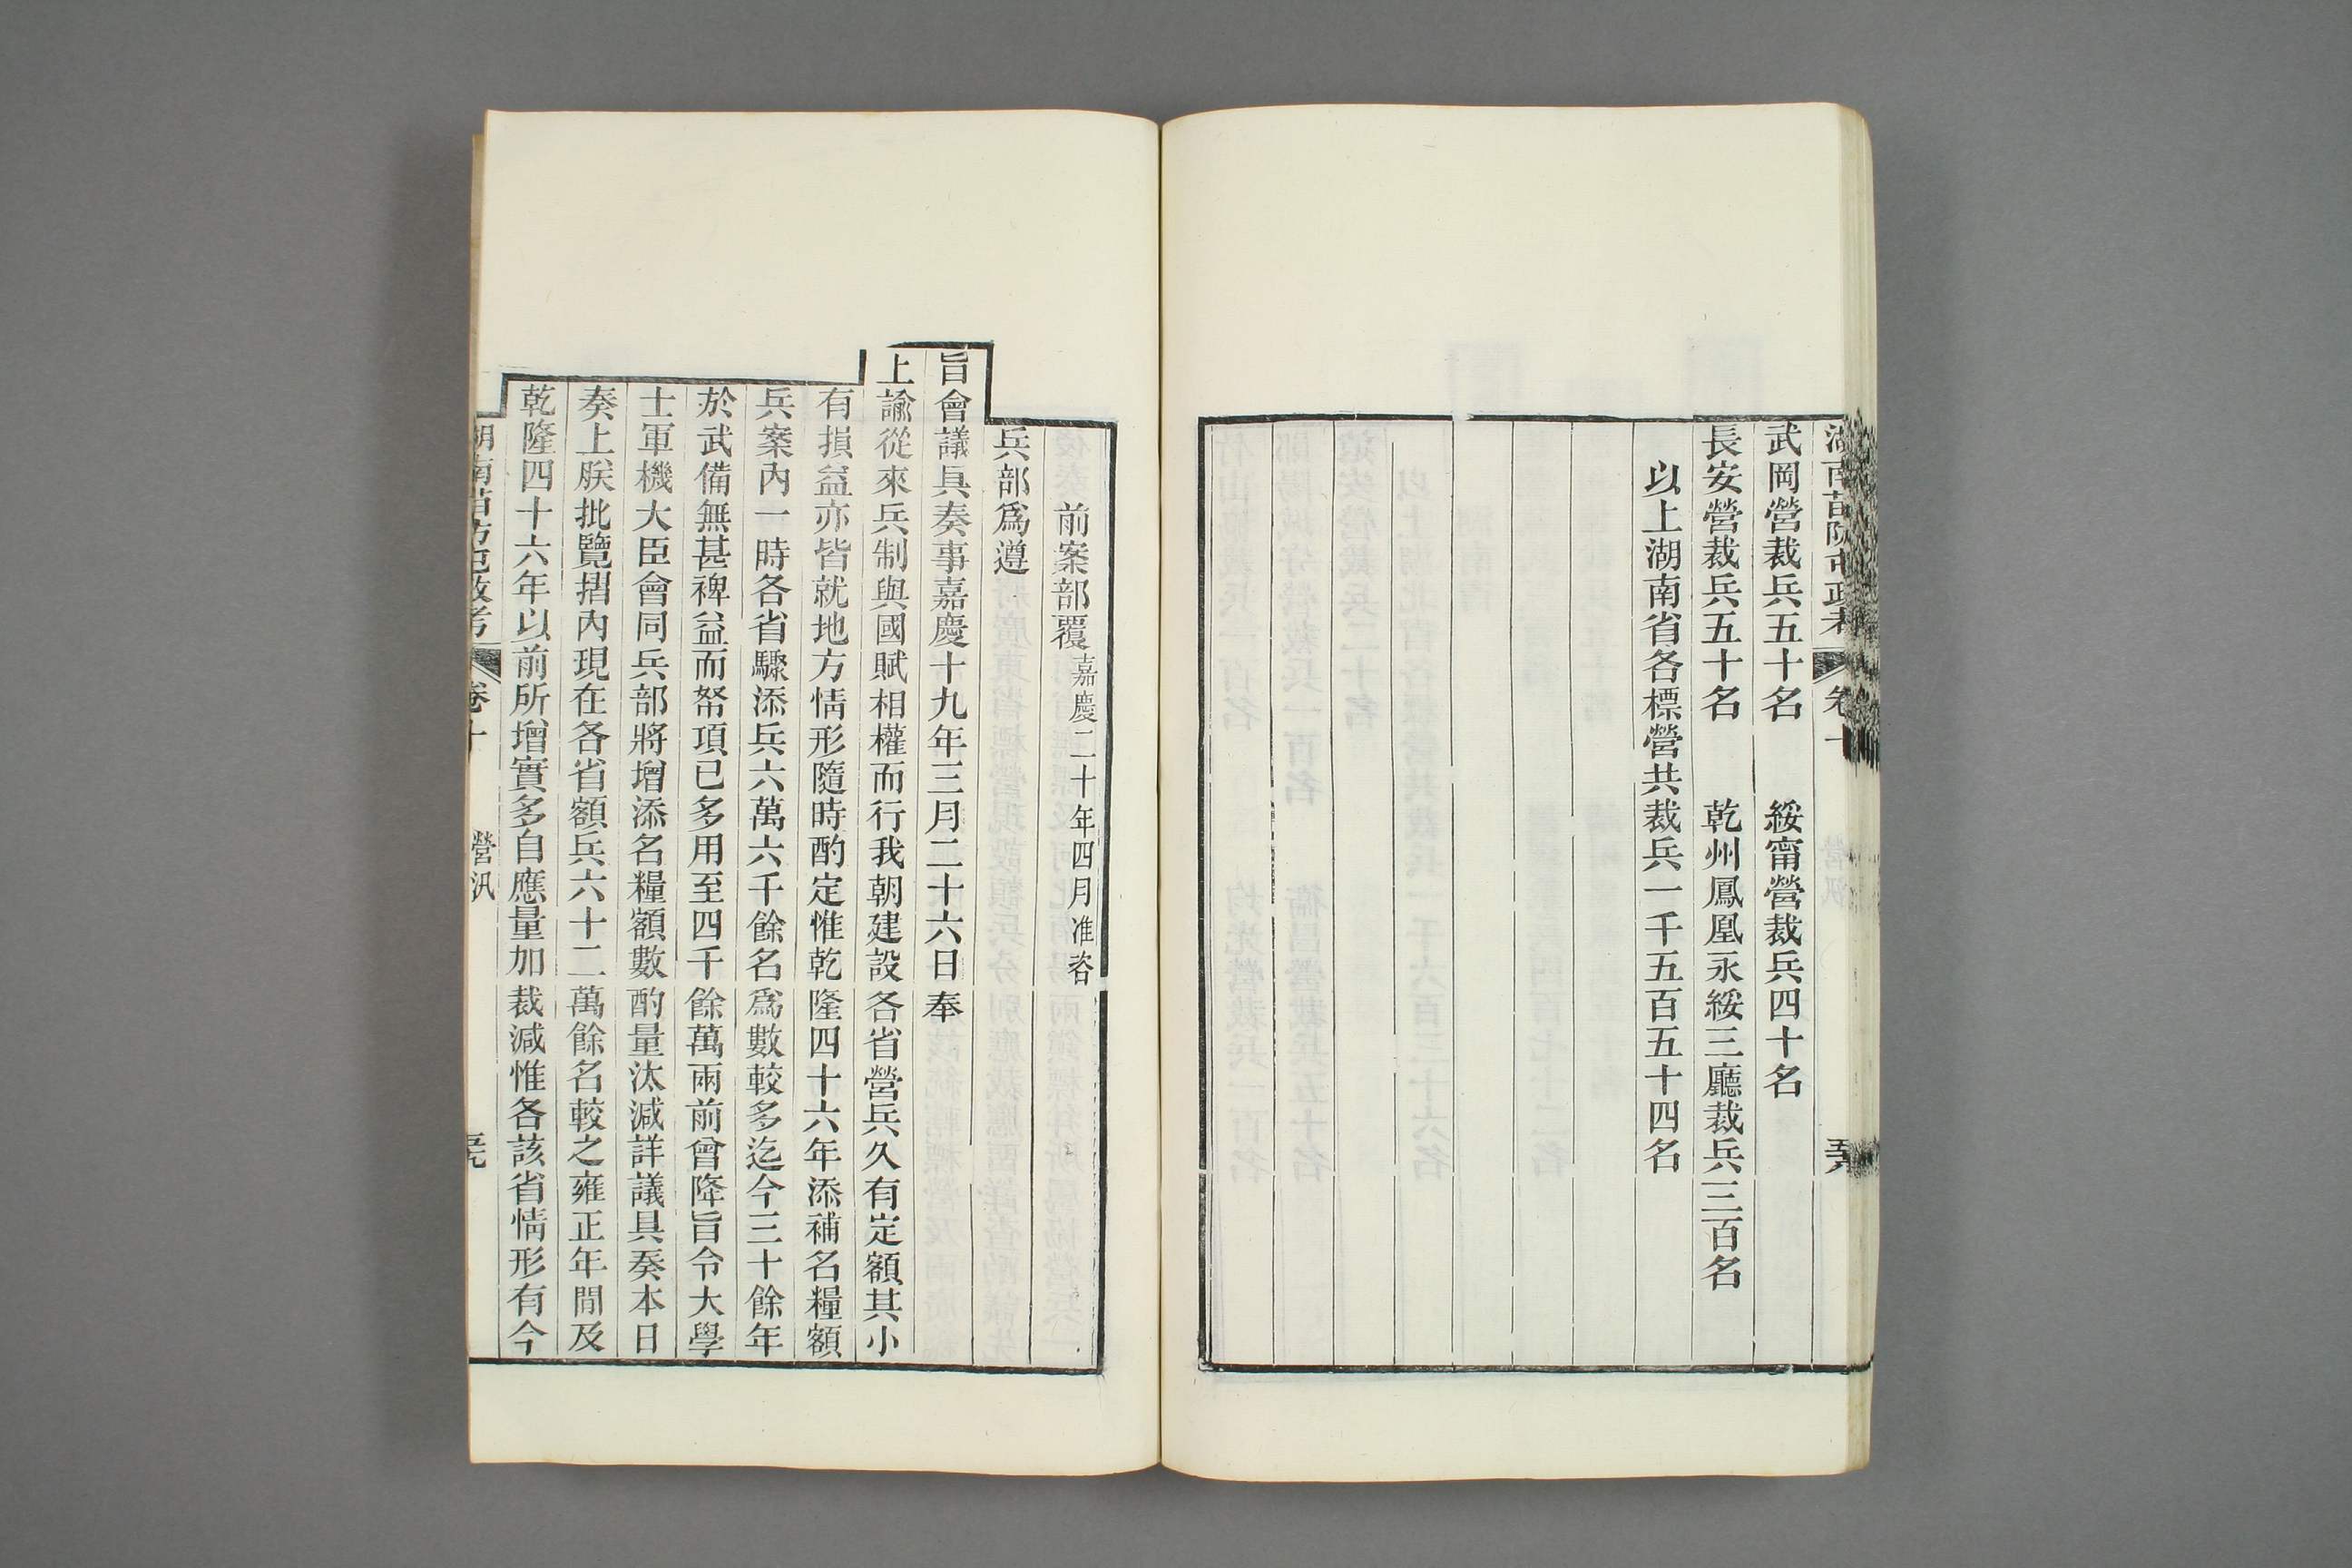 武岡營裁兵五十名　綏甯營裁兵四十名
長安營裁兵五十名　乾州鳳凰永綏三廳裁兵三百名
以上湖南省各標營共裁兵一千五百五十四名
前案部覆嘉慶二十年四月准咨
兵部爲遵
旨會議具奏事嘉慶十九年三月二十六日奉
上諭從來兵制與國賦相權而行我朝建設各省營兵久有定額其小
有損益亦皆就地方情形隨時酌定惟乾隆四十六年添補名糧額
兵案內一時各省驟添兵六萬六千餘名爲數較多迄今三十餘年
於武備無甚裨益而帑項已多用至四千餘萬兩前曾降旨令大學
士軍機大臣會同兵部將增添名糧額數酌量汰減詳議具奏本日
奏上朕批覽摺內現在各省額兵六十二萬餘名較之雍正年間及
乾隆四十六年以前所增實多自應量加裁減惟各該省情形有今
營汛